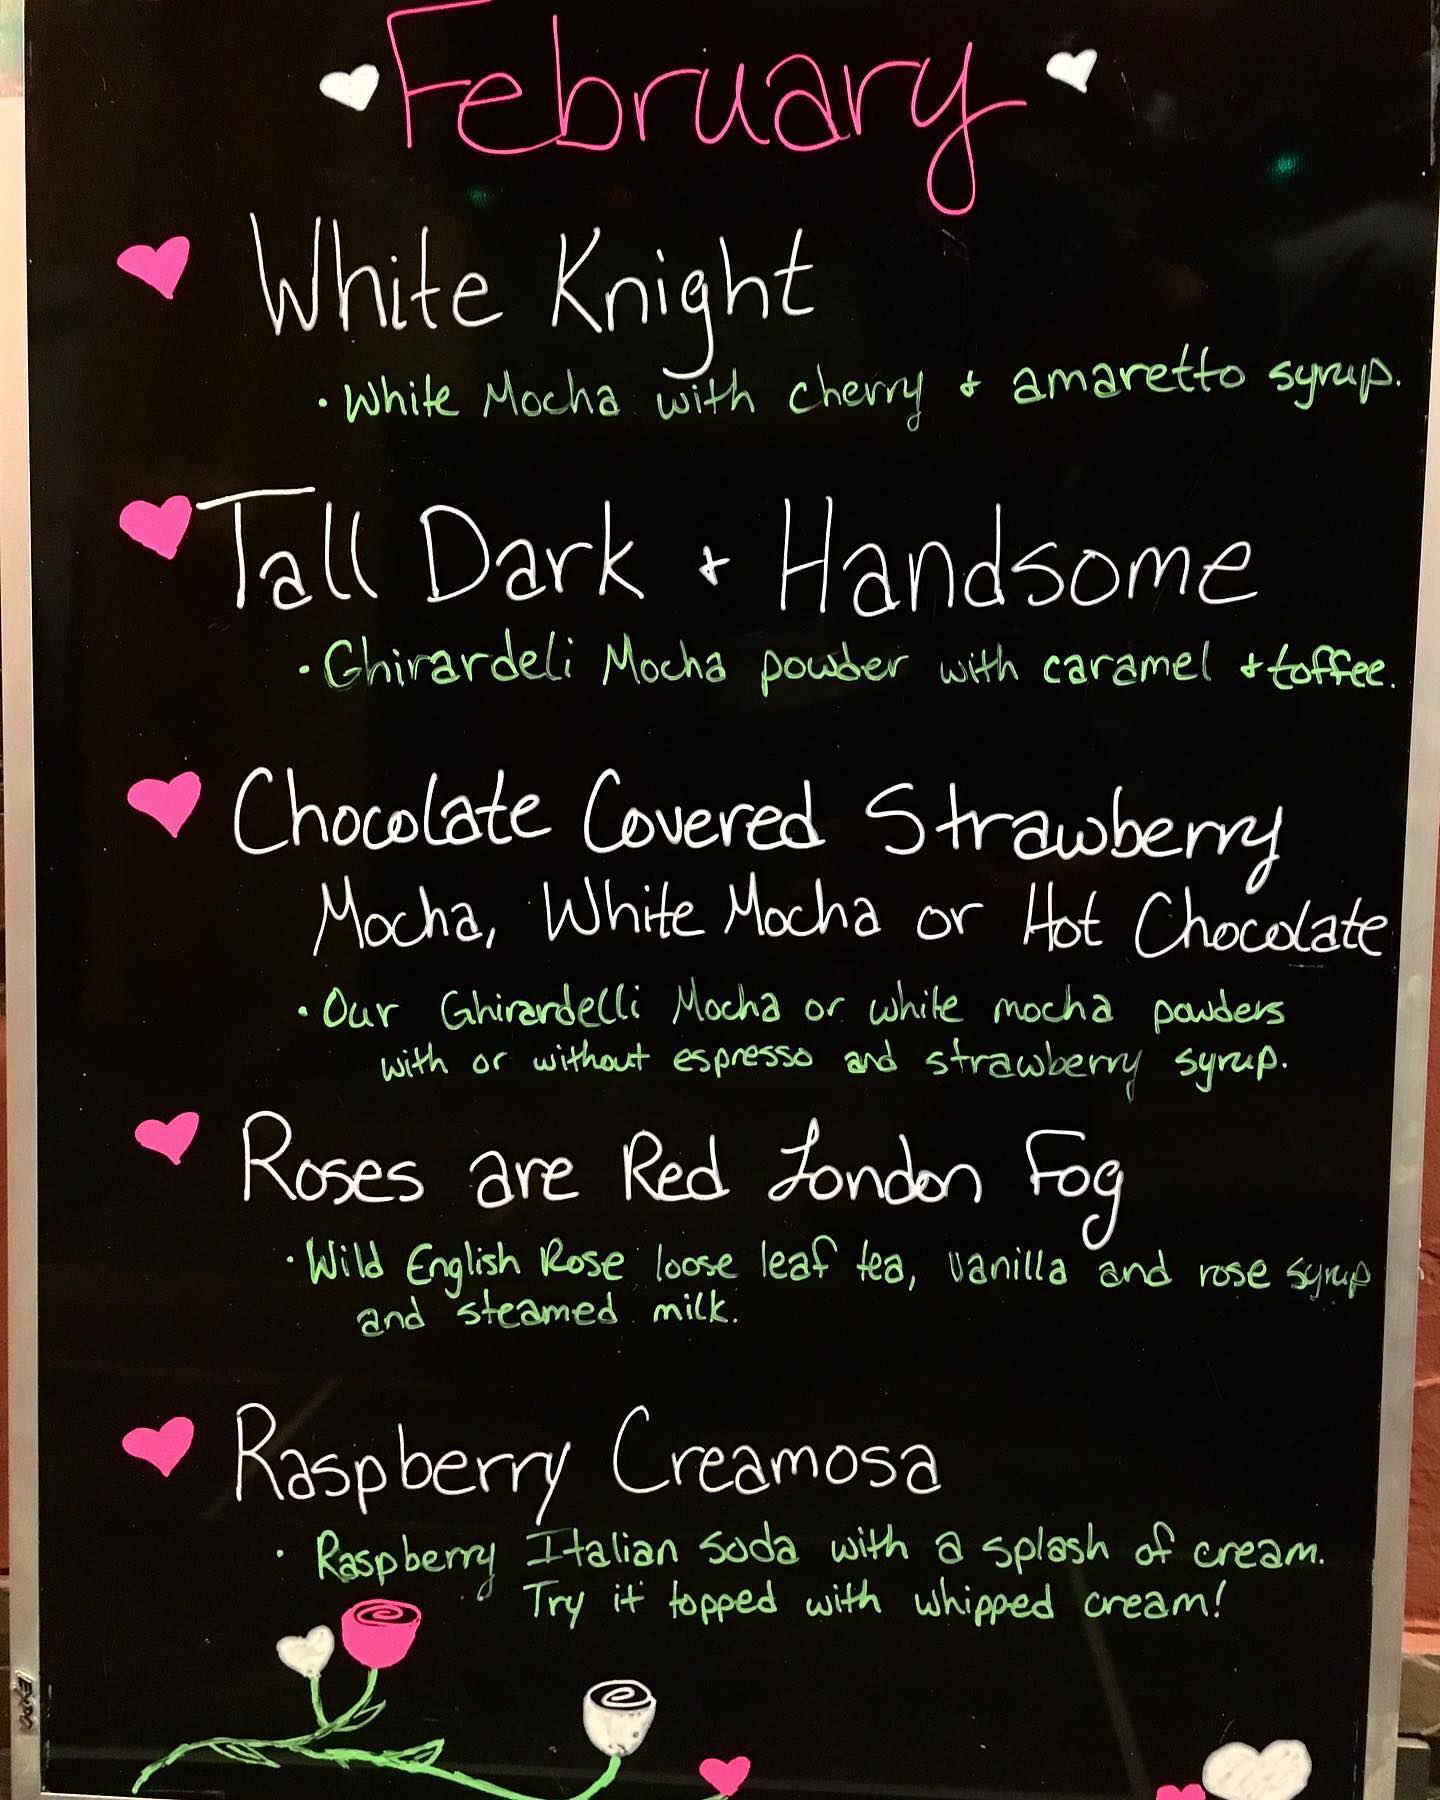 February
White Knight
• White Mocha with cherry + amaretto syrup.
Tall Dark + Handsome
• Ghirardeli Mocha powder with caramel + toffee.
Chocolate Covered Strawberry
Mocha, White Mocha or Hot Chocolate
• Our Ghirardelli Mocha or white mocha powders
with or without espresso and strawberry syrup.
Roses are Red London Fog
• Wild English Rose loose leaf tea, vanilla and rose syrup
and steamed milk.
Raspberry Creamosa
• Raspberry Italian Soda with a splash of cream.
Try it topped with whipped cream!